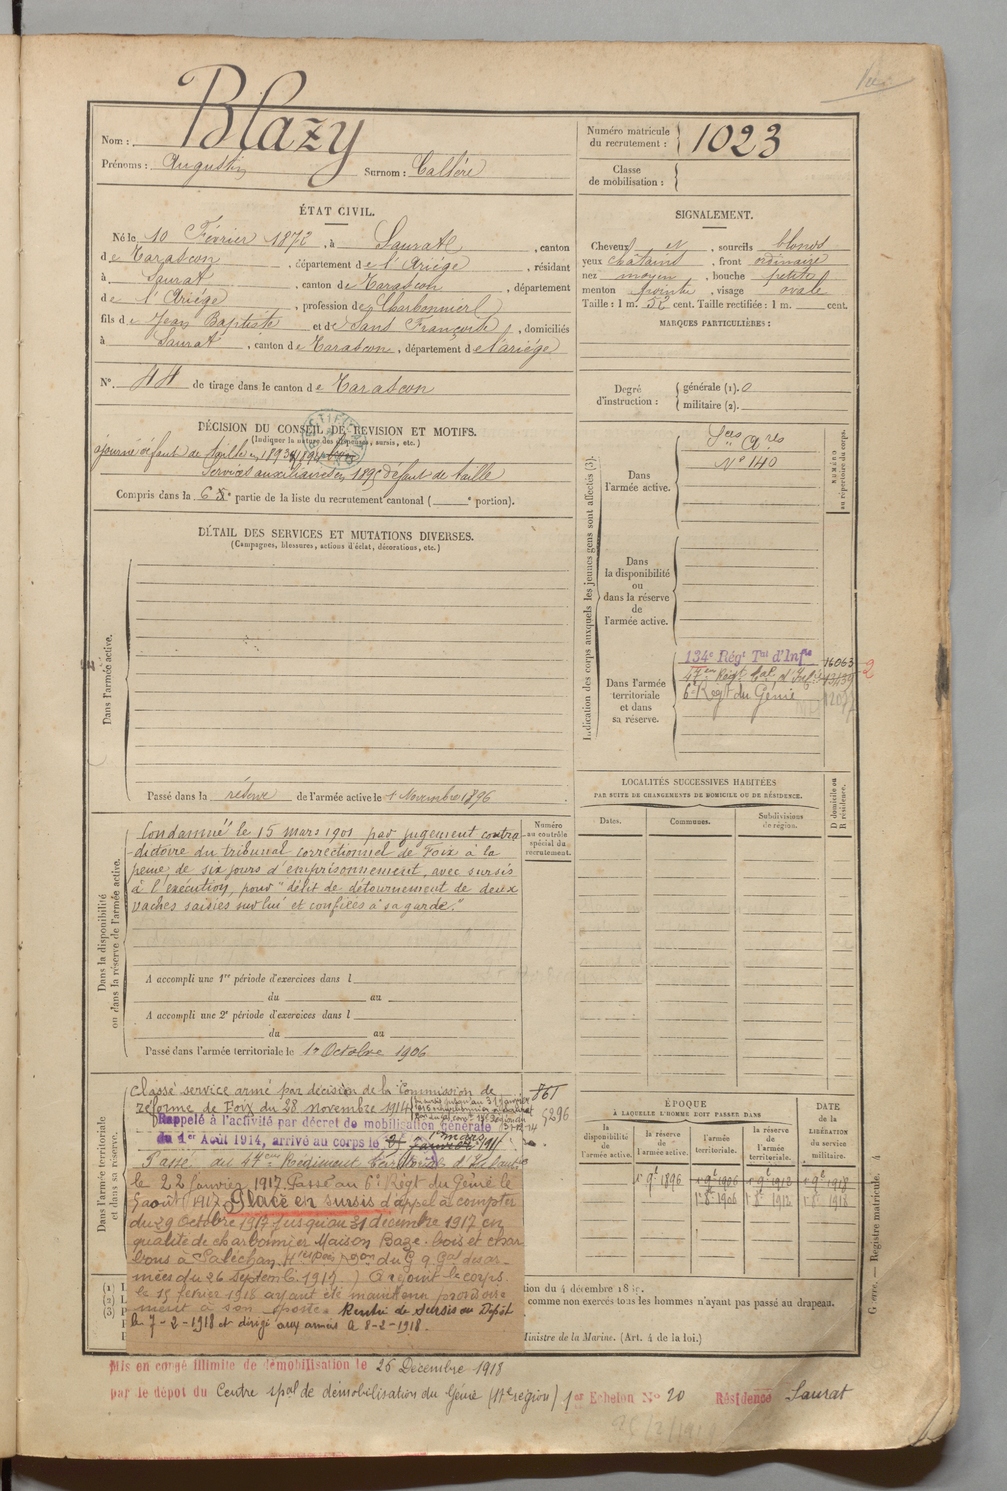 Nom : Blazy
Prénoms : Augustin Surnom : Callère
ÉTAT CIVIL.
Né le 10 Février 1872, à Saurat, canton
de Tarascon, département de l'Ariége, résidant
à Saurat, canton de Tarascon, département
de l'Ariége, profession de Charbonnier
fils de Jean Baptiste et de Sans Françoise, domiciliés
à Saurat, canton de Tarascon, département de l'ariége
N° 44 de tirage dans le canton de Tarascon
DÉCISION DU CONSEIL DE REVISION ET MOTIFS.
(Indiquer la nature des dispenses, sursis, etc.)
ajourné défaut de taille en 1893 1894
Services auxiliaires en 1895 défaut de taille
Compris dans la 6e partie de la liste du recrutement cantonal ( e portion).
DÉTAIL DES SERVICES ET MUTATIONS DIVERSES.
(Campagnes, blessures, actions d'éclat, décorations, etc.)
Dans l'armée active.
Passé dans la réserve de l'armée active le 1 Novembre 1896
Numéro
au contrôle
spécial du
recrutement.
Dans la disponibilité
ou dans la réserve de l'armée active.
Condamné le 15 mars 1901 par jugement contra-
dictoire du tribunal correctionnel de Foix à la
peine de six jours d'emprisonnement, avec sursis
à l'exécution, pour "délit de détournement de deux
vaches saisies sur lui et confiées à sa garde."
A accompli une 1re période d'exercices dans l
du au
A accompli une 2e période d'exercices dans l
du au
Passé dans l'armée territoriale le 1er Octobre 1906
Dans l'armée territoriale
et dans sa réserve.
Classé service armé par décision de la Commission de
réforme de Foix du 28 novembre 1914
861
5296
Rappelé à l'activité par décret de mobilisation générale
du 1er Août 1914, arrivé au corps le 1er mars
Passé au 47eme Régiment Territorial d'Infanterie
le 22 janvier 1917. Passé au 6e Régt du Génie le
5 août 1917. Placé en sursis d'appel à compter
du 29 Octobre 1917 jusqu'au 31 décembre 1917 en
qualité de charbonnier Maison Bage. bois et char
bons à Saléchan, du G. Q. Gal des ar-
mées du 26 Septemb. 1917 ) A rejoint le corps
le 15 février 1918 ayant été maintenu provisoire
ment à son poste. Rentré de sursis au Dépôt
le 7-2-1918 et dirigé aux armées le 8-2-1918.
Mis en congé illimité de démobilisation le 26 Décembre 1918
par le dépôt du Centre spal de démobilisation du Génie (17e région) 1er Echelon No 20 Résidence Saurat
Numéro matricule
du recrutement : 1023
Classe
de mobilisation :
SIGNALEMENT.
Cheveux et, sourcils blonds
yeux châtains, front ordinaire
nez moyen, bouche petite
menton pointu, visage ovale
Taille : 1 m. 52 cent. Taille rectifiée : 1 m. cent.
MARQUES PARTICULIÈRES :
Degré
d'instruction :
générale (1). 0
militaire (2).
Indication des corps auxquels les jeunes gens sont affectés (3).
NUMÉRO
au répertoire du corps.
Dans
l'armée active.
Sces Ares
N° 140
Dans
la disponibilité
ou
dans la réserve
de
l'armée active.
Dans l'armée
territoriale
et dans
sa réserve.
134e Régt Tal d'Infie 16063
47eme Régt tal d'Inf.
6e Regt du Génie
2
LOCALITÉS SUCCESSIVES HABITÉES
PAR SUITE DE CHANGEMENTS DE DOMICILE OU DE RÉSIDENCE.
D domicile ou
R résidence.
Dates. Communes. Subdivisions
de région.
ÉPOQUE
À LAQUELLE L'HOMME DOIT PASSER DANS
DATE
de la
LIBÉRATION
du service
militaire.
la
disponibilité
de
l'armée active.
la réserve
de
l'armée active.
l'armée
territoriale.
la réserve
de
l'armée
territoriale.
1er 9e 1896 1er 9e 1906 1er 9e 1912 1er 9e 1918
1er 8e 1906 1er 8e 1912 1er 8e 1918
comme non exercés tous les hommes n'ayant pas passé au drapeau.
Ministre de la Marine. (Art. 4 de la loi.)
Guerre. — Registre matricule. 4